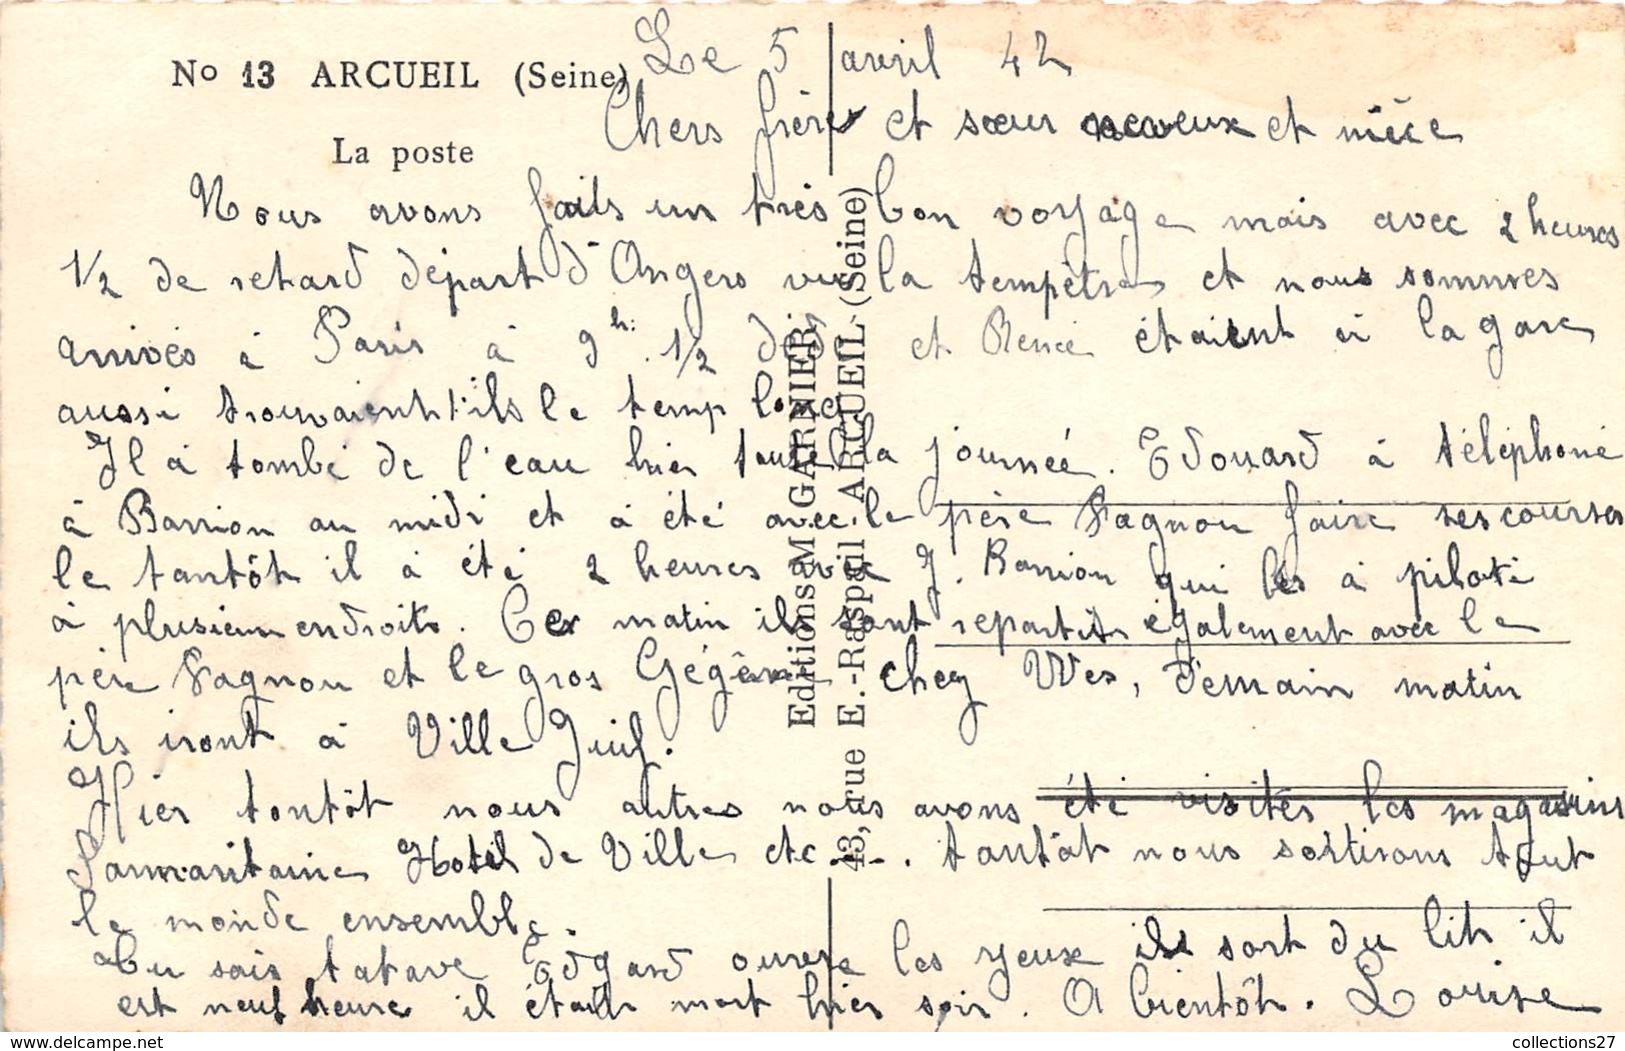 Le 5 avril 42
No 13 ARCUEIL (Seine)
Chers frères et sœur neveux et nièce
La poste
Nous avons faits un très bon voyage mais avec 2 heures
1/2 de retard départ d'Angers vu la tempêtre et nous sommes
arrivés à Paris à 9h. 1/2 et Renée étaient à la gare
aussi trouvaient-ils le temp long
Il à tombé de l'eau hier toute la journée. Edouard à téléphoné
à Barrion au midi et à été avec le père Fagnou faire ses courses
le tantôt il à été 2 heures avec J. Barrion qui les à piloté
à plusieurs endroits. Ce matin ils sont repartis également avec le
père Fagnou et le gros Gégène chez Wes, demain matin
ils iront à Ville Juif.
Hier tantôt nous autres nous avons été visités les magasins
Samaritaine Hotel de Ville etc.... tantôt nous sortirons tout
le monde ensemble.
Tu sais tatave Edgard ouvre les yeux il sort du lit il
est neuf heure il était mort hier soir. A bientôt. Louise
Editions M GARNIER
43, rue E.-Raspail ARCUEIL (Seine)
collections27